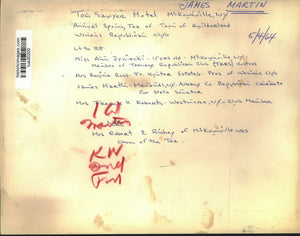 JAMES MARTIN
Tom Sawyer Motel McKownville, NY
5/4/64
Annual Spring Tea of Town of Guilderland
Women's Republican Club
L to Rt
Miss Ann Zynieski - 15 yrs old - McKownville NY
Member of Teenage Republican Club (TARS) hostess
Mrs Regina Ross - Ft Hunter Estates - Pres of Women's Club
James Martin - Menands, NY - Albany Co Republican candidate
for State Senator
Mrs H Roberts - Westmere, NY - Club Member
Mrs Robert E Richey of McKownville was
chmn of the Tea
1 col
Martin
KN
and
Fri